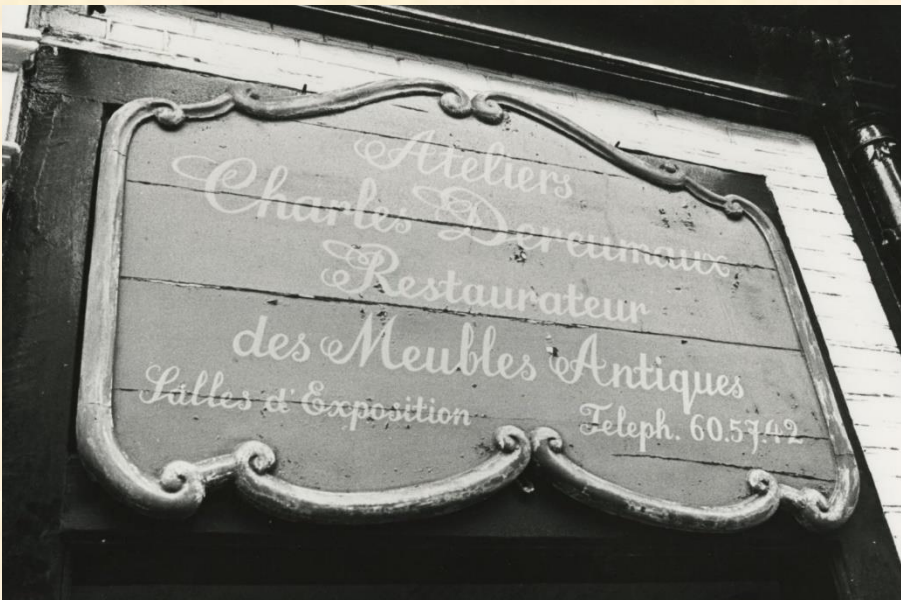 Ateliers
Charles Dereumaux
Restaurateur
des Meubles Antiques
Salles d'Exposition
Teleph. 60.57.42